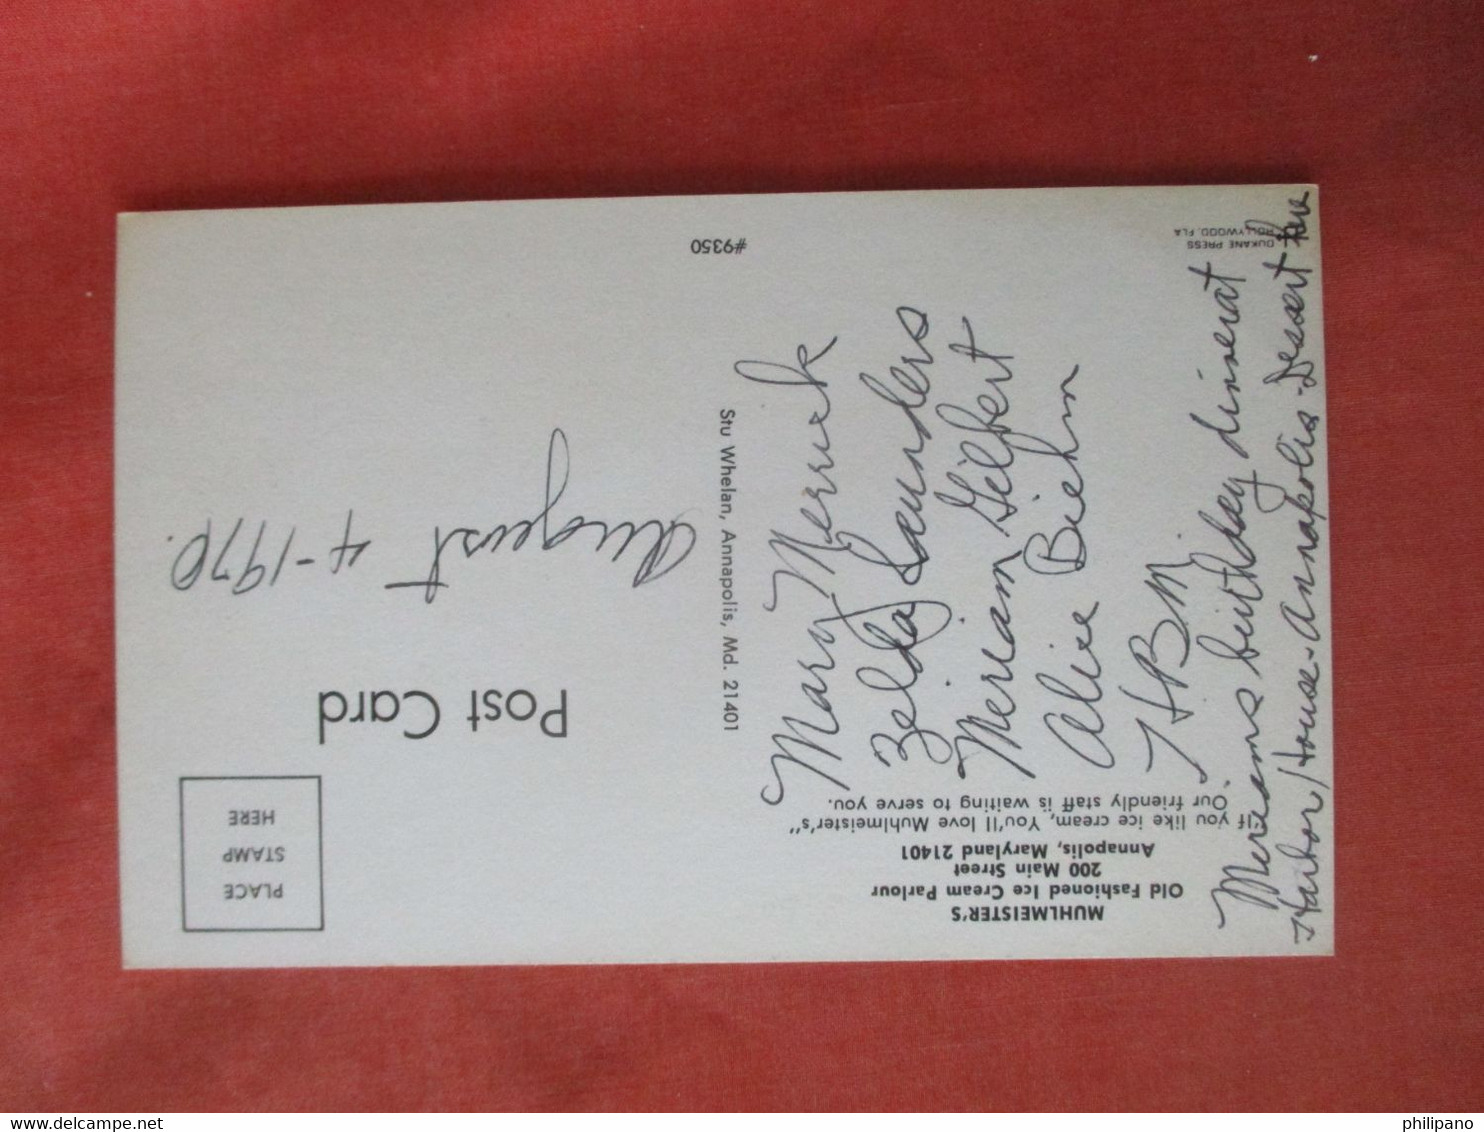 MUHLMEISTER'S
Old Fashioned Ice Cream Parlour
200 Main Street
Annapolis, Maryland 21401
"If you like ice cream, You'll love Muhlmeister's"
Our friendly staff is waiting to serve you.
Mary Merrick
Zelda Saunders
Meriam Gilbert
Alice Biehm
HBM.
Meriams birthday dinner at
Harbor House - Annapolis - Dessert here
DUKANE PRESS
HOLLYWOOD, FLA
Stu Whelan, Annapolis, Md. 21401
#9350
Post Card
PLACE
STAMP
HERE
August 4-1970.
www.delcampe.net
philipano